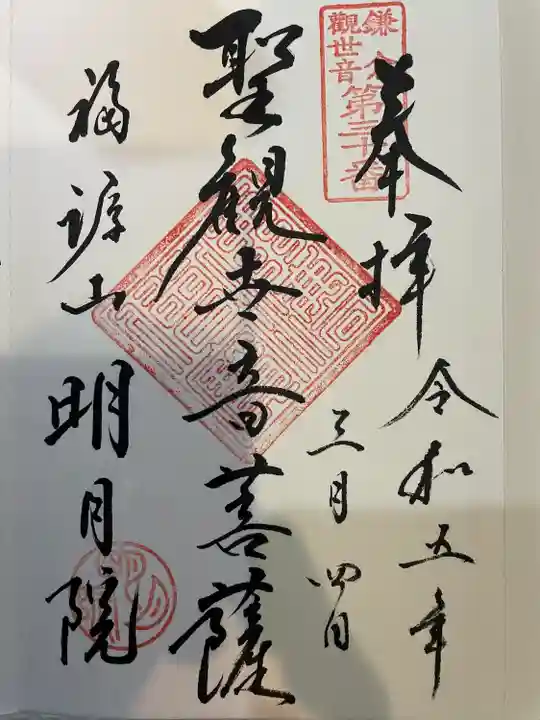 鎌倉
觀世音
第三十番
奉拝
令和五年
三月四日
聖観世音菩薩
福源山
明月院